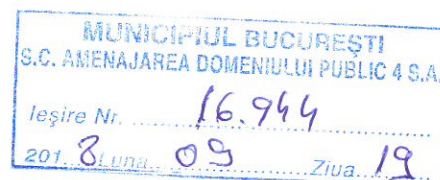 MUNICIPIUL BUCUREŞTI
S.C. AMENAJAREA DOMENIULUI PUBLIC 4 S.A.
Ieşire Nr. 16.944
2018 Luna 09 Ziua 19